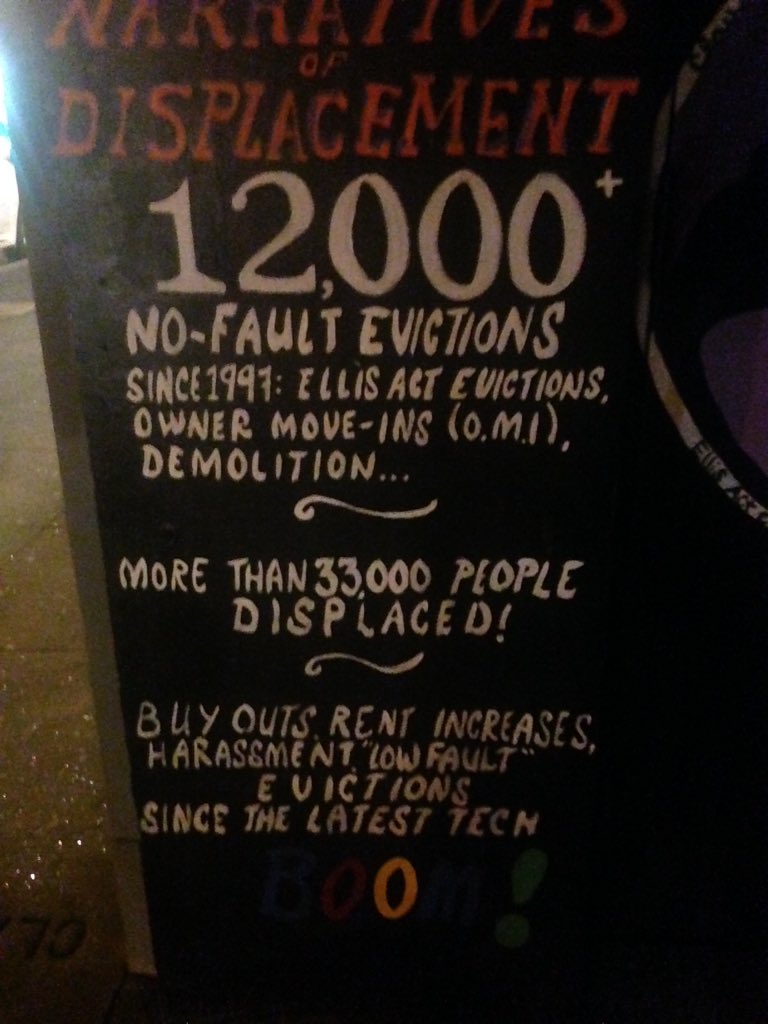 NARRATIVES
OF
DISPLACEMENT
12,000+
NO-FAULT EVICTIONS
SINCE 1997: ELLIS ACT EVICTIONS,
OWNER MOVE-INS (O.M.I),
DEMOLITION...
MORE THAN 33,000 PEOPLE
DISPLACED!
BUY OUTS, RENT INCREASES,
HARASSMENT, "LOW FAULT"
EVICTIONS
SINCE THE LATEST TECH
BOOM!
ELLIS ACT
70